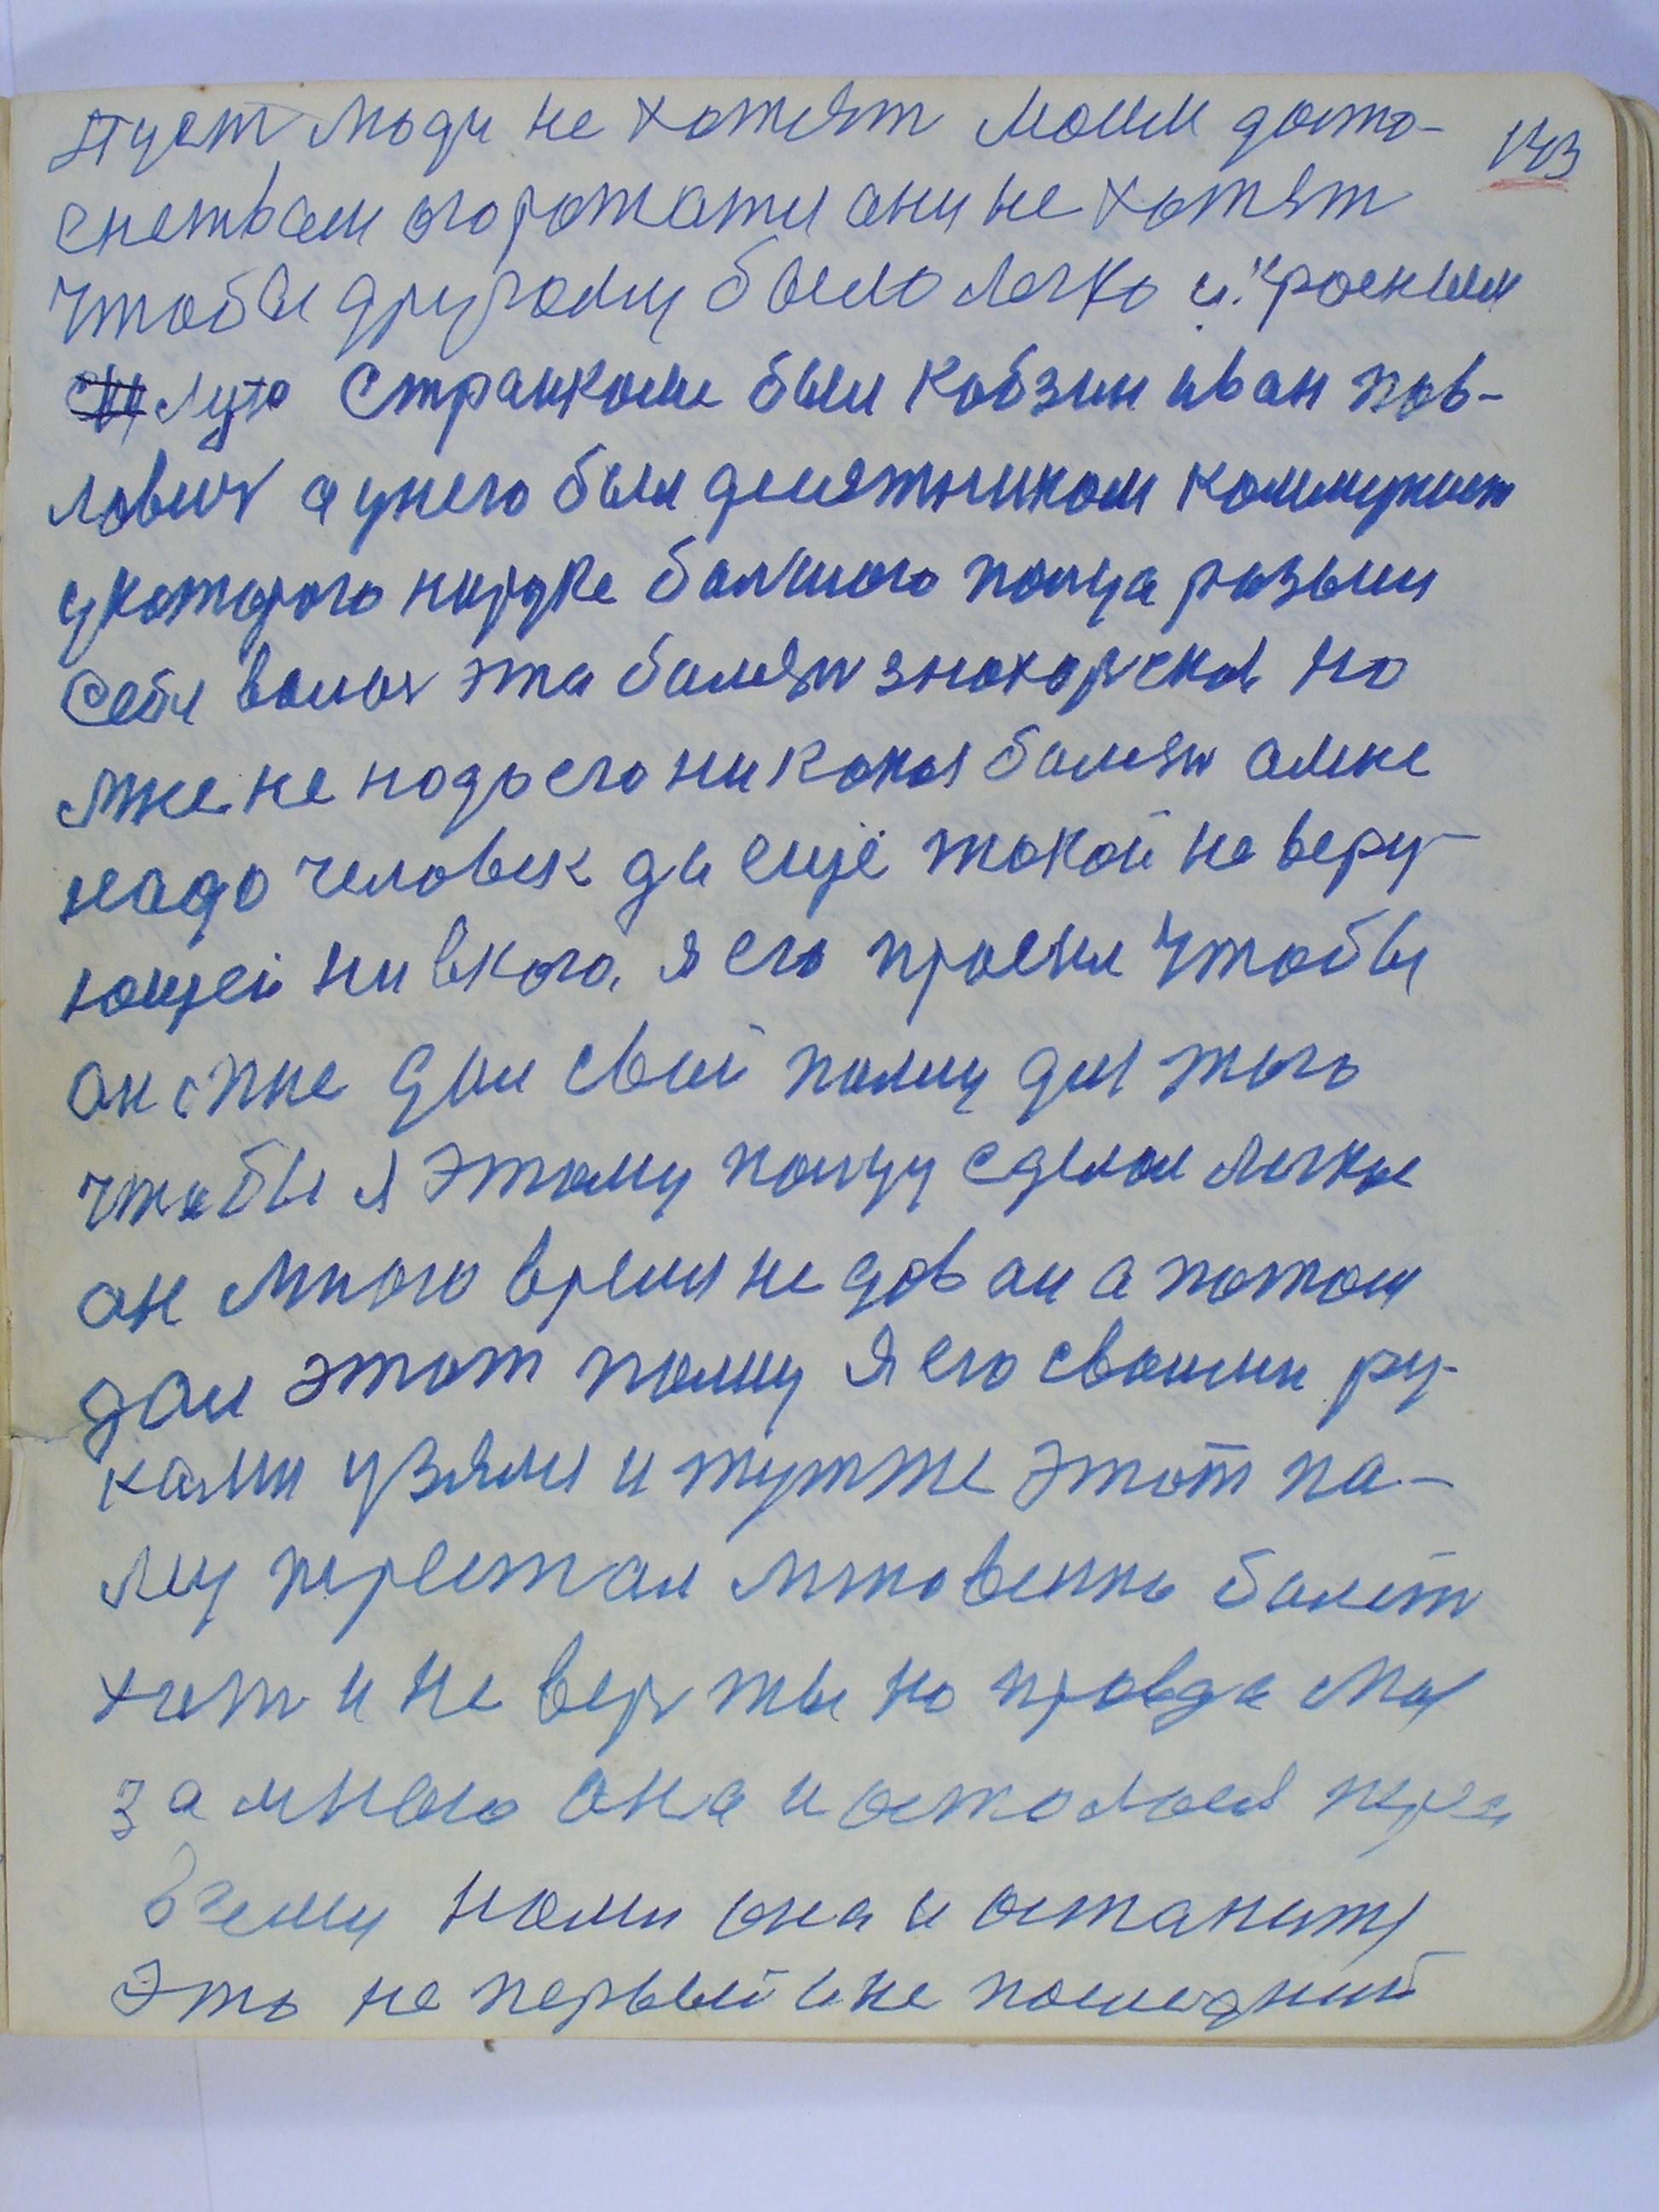 Пуст люди не хотят моим дото-
снетвам огорожатя они не хотят
Чтобы другому было легко и."красным
луто Странкоме был Кобзин иван пав-
лович а унего был десятником коммунист
укоторого наруке большого польца развил
себя волос эта болезн знахорская но
мне не надо его никокоя болезн амне
надо человек да ещё токой не веру-
ющей ни вкого. я его просил Чтобы
он мне дал свой полец для того
чтобы я этому польцу сделал легкое
он много время не довал а потом
дал этот полец Я его своими ру-
ками узяли и тутже этот па-
лец перестал мгновенно болет
хот и не вер ты но правда моя
замною она и осталося пере
всеми нами она и останитя
Это не первый ине последний
143